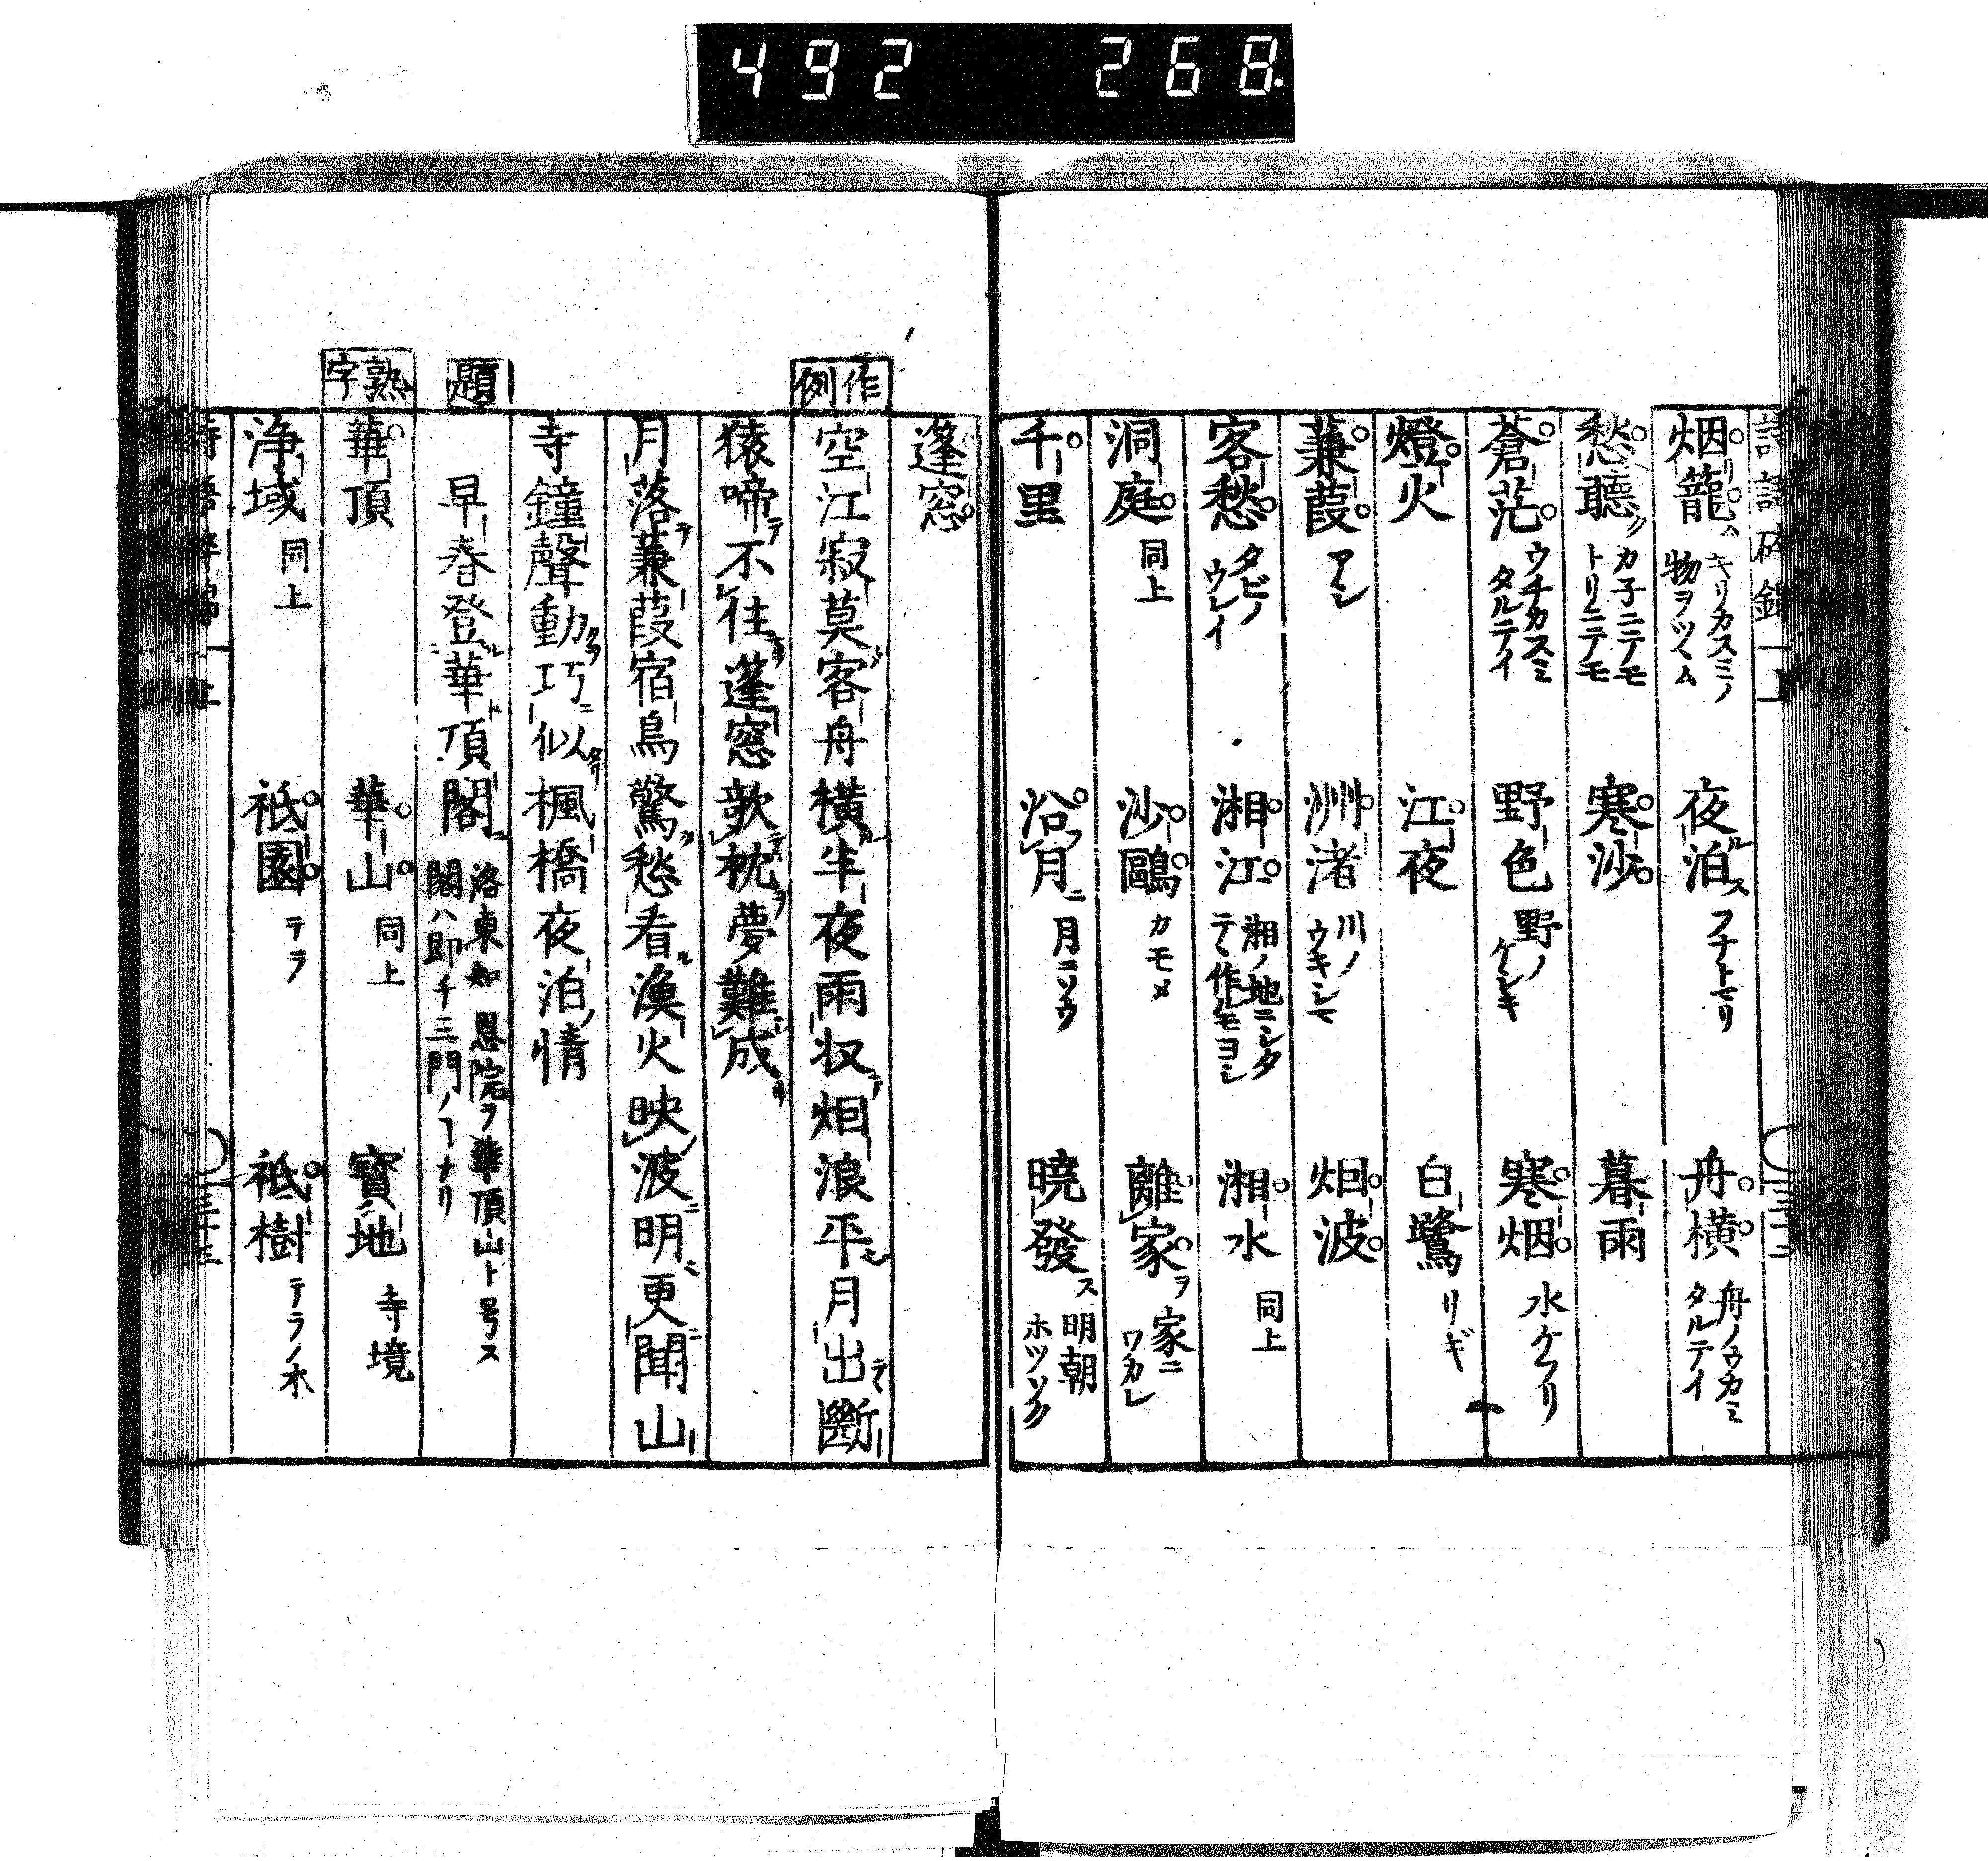 492 268.
烟籠 キリカスミノ物ヲツヽム 夜泊ス フナトマリ 舟横 舟ノウカミタルテイ
愁聽 カ子ニテモトリニテモ 寒沙 暮雨
蒼茫 ウチカスミタルテイ 野色 野ノケシキ 寒烟 水ケフリ
燈火 江夜 白鷺 サギ
蒹葭 アシ 洲渚 川ノウキシマ 烟波
客愁 タビノウレイ 湘江 湘ノ地ニシタテヽ作ルモヨシ 湘水 同上
洞庭 同上 沙鷗 カモメ 離家ヲ 家ニワカレ
千里 沿月ニ 月ニソウ 曉發ス 明朝ホツソク
篷窓
作例
空江寂莫客舟橫半夜雨収烟浪平月出斷
猿啼不住篷窓欹枕夢難成
月落蒹葭宿鳥驚愁看漁火映波明更聞山
寺鐘聲動巧似楓橋夜泊情
題
早春登華頂閣 洛東知恩院ヲ華頂山ト号ス閣ハ即チ三門ノヿナリ
熟字
華頂 華山 同上 寳地 寺境
浄域 同上 祇園 テラ 祇樹 テラノ木